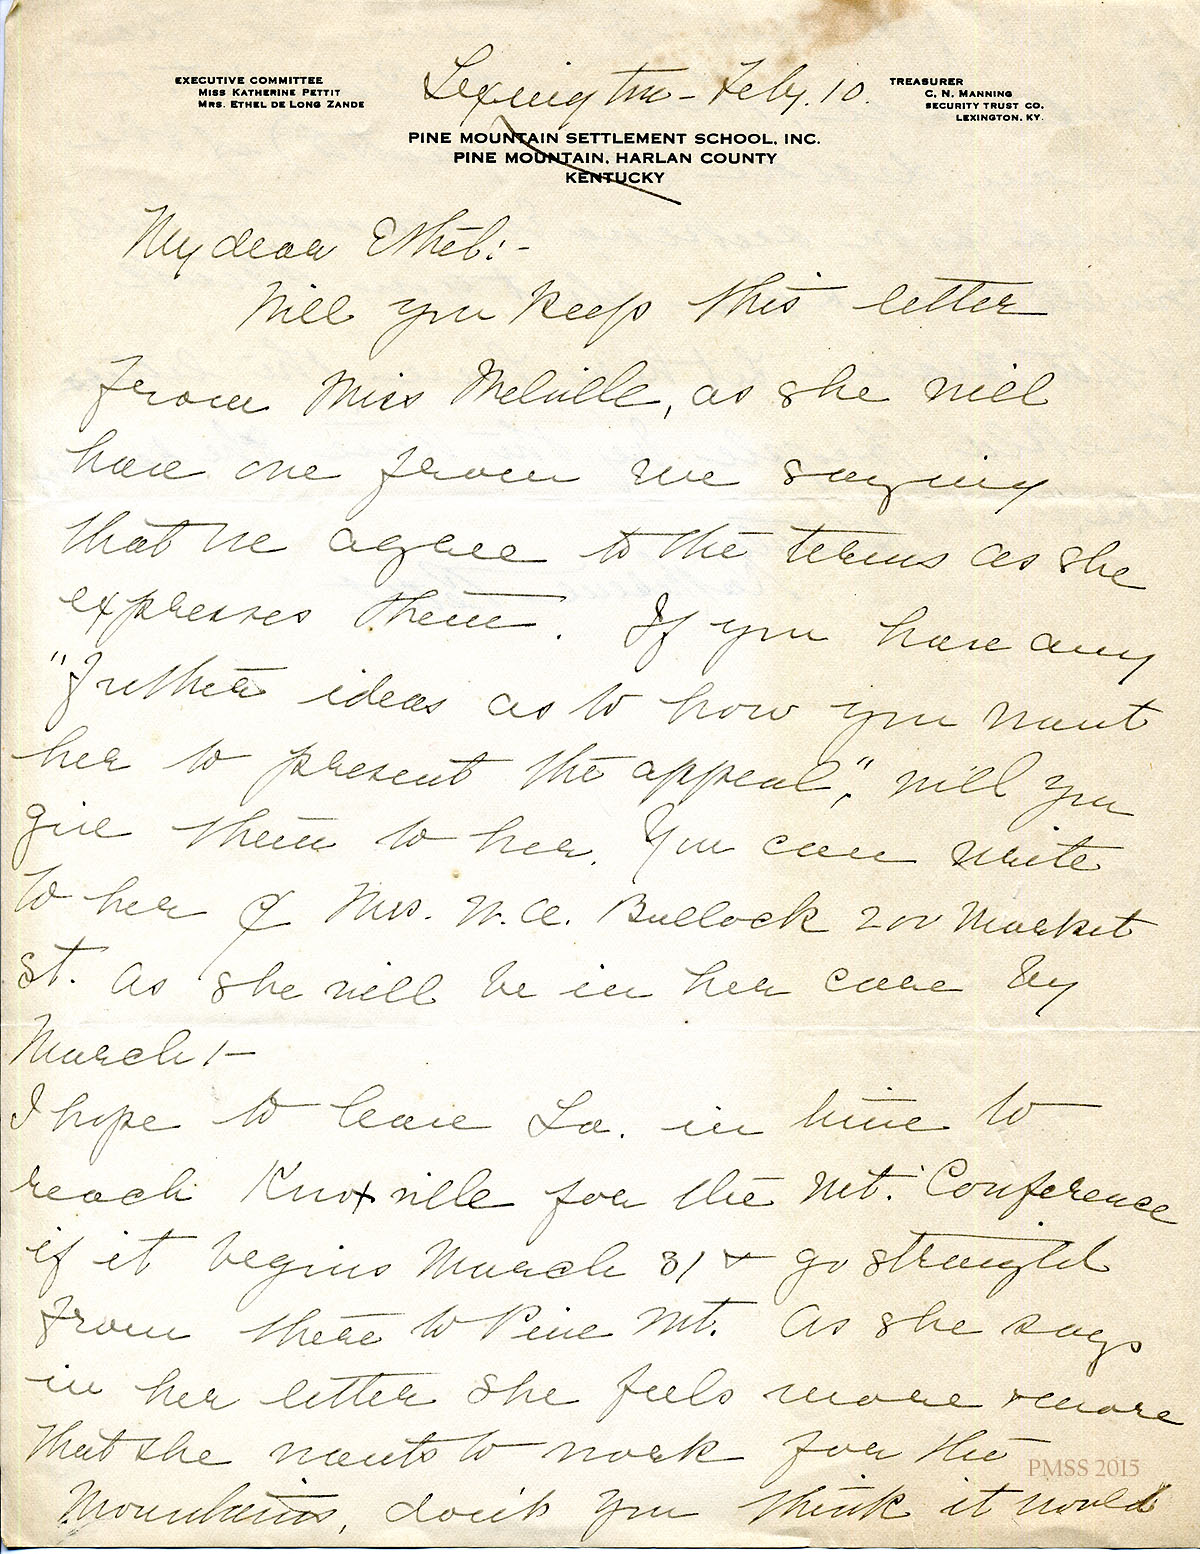 EXECUTIVE COMMITTEE
MISS KATHERINE PETTIT
MRS. ETHEL DE LONG ZANDE
Lexington - Feby. 10.
TREASURER
C. N. MANNING
SECURITY TRUST CO.
LEXINGTON, KY.
PINE MOUNTAIN SETTLEMENT SCHOOL, INC.
PINE MOUNTAIN, HARLAN COUNTY
KENTUCKY
My dear Ethel:-
Will you keep this letter
from Miss Melville, as she will
have one from me saying
that we agree to the terms as she
expresses them. If you have any
"further ideas as to how you want
her to present the appeal", will you
give them to her. You can write
to her c/o Mrs. W. A. Bullock 200 Market
St. as she will be in her care by
March 1-
I hope to leave La. in time to
reach Knoxville for the Mt. Conference
if it begins March 31 & go straight
from there to Pine Mt. As she says
in her letter she feels more & more
that she wants to work for the
Mountains, don't you think it would
PMSS 2015